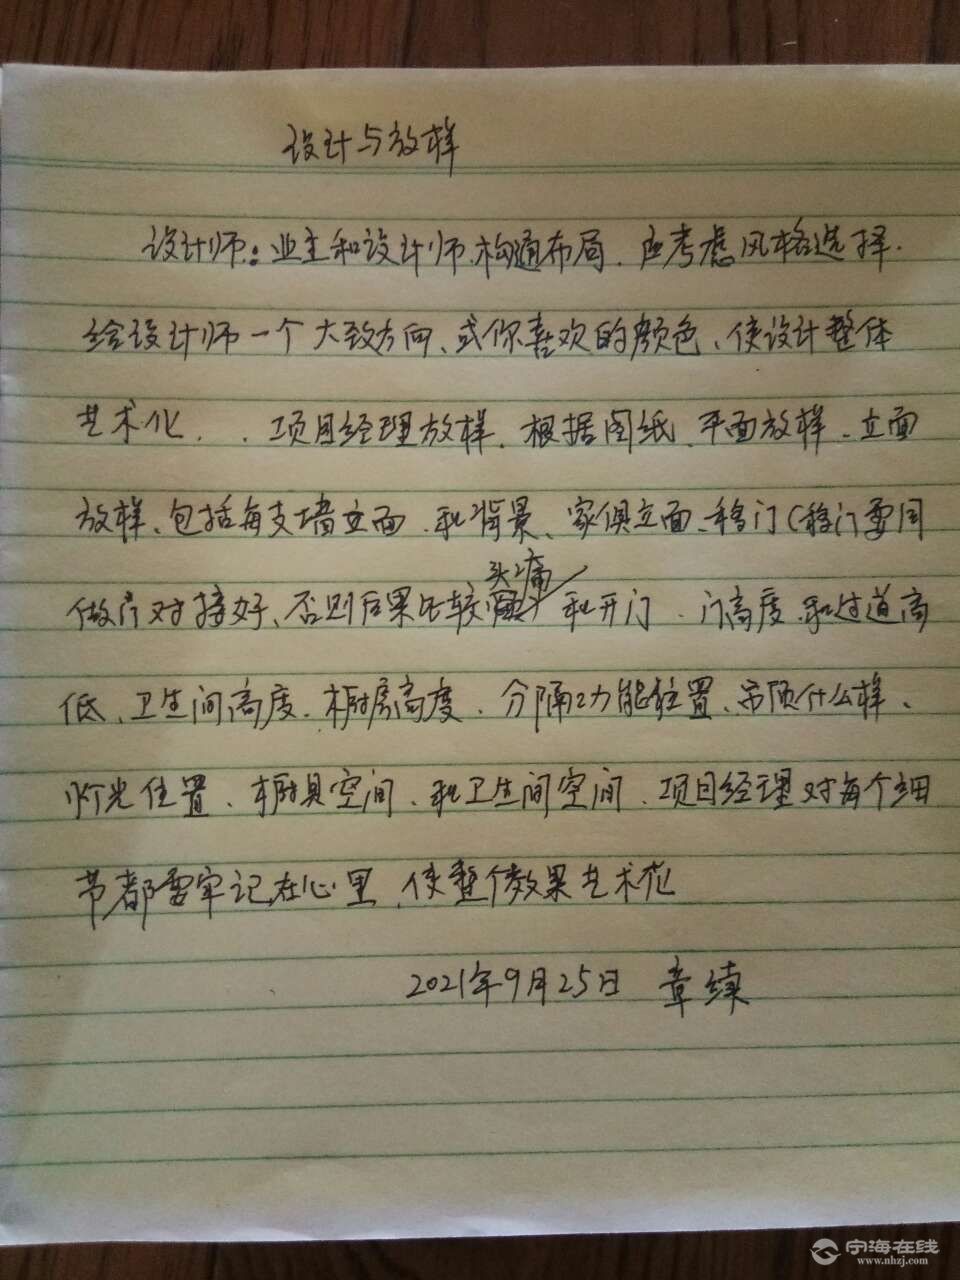 设计与放样
设计师:业主和设计师沟通布局、应考虑风格选择.
给设计师一个大致方向、或你喜欢的颜色、使设计整体
艺术化、.项目经理放样、根据图纸、平面放样、立面
放样、包括每支墙立面、和背景、家俱立面、移门(移门要同
头痛
做门对接好、否则后果比较 和开门、门高度、和过道高
低、卫生间高度、橱房高度、分隔功能位置、吊顶什么样、
灯光位置、橱具空间、和卫生间空间、项目经理对每个细
节都要牢记在心里、使整个效果艺术化
2021年9月25日 章续
宁海在线
www.nhzj.com